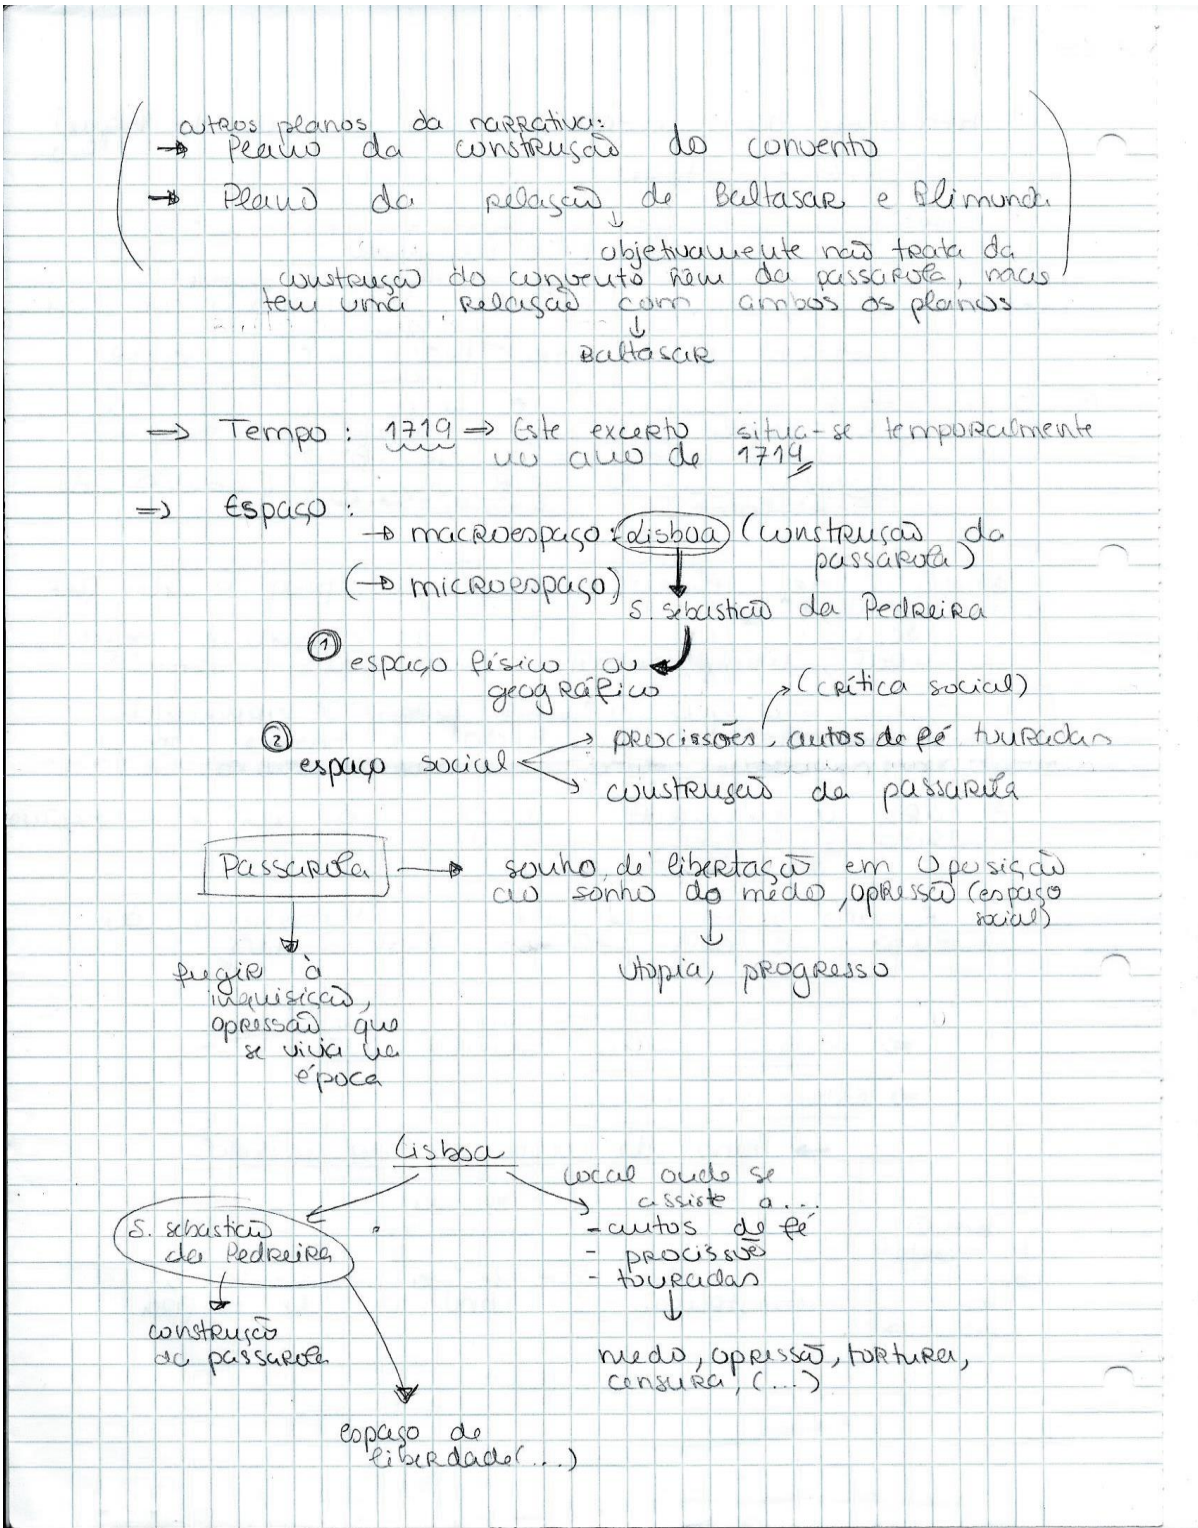 outros planos da narrativa:
→ Plano da construção do convento
→ Plano da relação de Baltasar e Blimunda
↓
objetivamente não trata da
construção do convento nem da passarola, mas
tem uma relação com ambos os planos
↓
Baltasar
⇒ Tempo: 1719 ⇒ Este excerto situa-se temporalmente
no ano de 1719
⇒ Espaço:
→ macroespaço: Lisboa (construção da
passarola)
(→ microespaço)
S. Sebastião da Pedreira
① espaço físico ou
geográfico
→ (crítica social)
② → procissões, autos de fé touradas
espaço social
→ construção da passarola
Passarola → sonho de libertação em oposição
ao sonho do medo, opressão (espaço
social)
↓ ↓
fugir à utopia, progresso
inquisição,
opressão que
se vivia na
época
Lisboa
local onde se
assiste a...
S. Sebastião - autos de fé
da Pedreira - procissõe
- touradas
↓ ↓
construção
da passarola
medo, opressão, tortura,
censura, (...)
espaço de
liberdade (...)